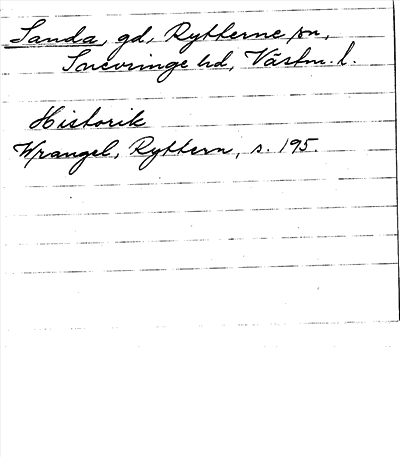 Sanda, gd, Rytterne sn,
Snevringe hd, Västm. l.
Historik
Wrangel, Ryttern, s. 195.